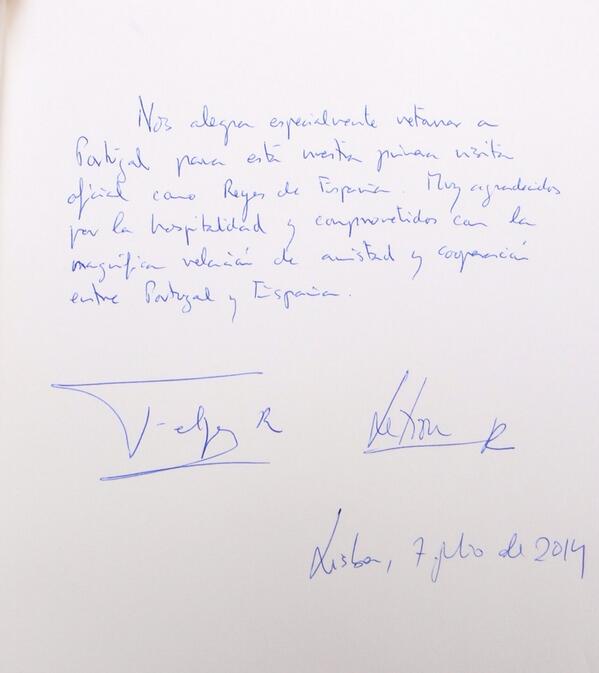 Nos alegra especialmente retornar a
Portugal para está nuestra primera visita
oficial como Reyes de España. Muy agradecidos
por la hospitalidad y comprometidos con la
magnífica relación de amistad y cooperación
entre Portugal y España.
Felipe R
Letizia R
Lisboa, 7 julio de 2014